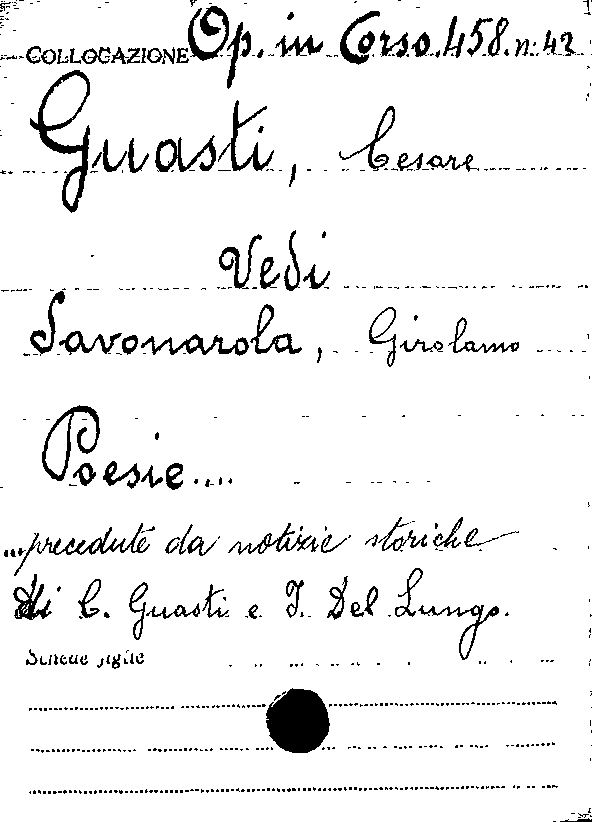 COLLOCAZIONE Op. in Corso. 458. n. 42
Guasti, Cesare
Vedi
Savonarola, Girolamo
Poesie....
...precedute da notizie storiche
di C. Guasti e I. Del Lungo.
Schede figlie